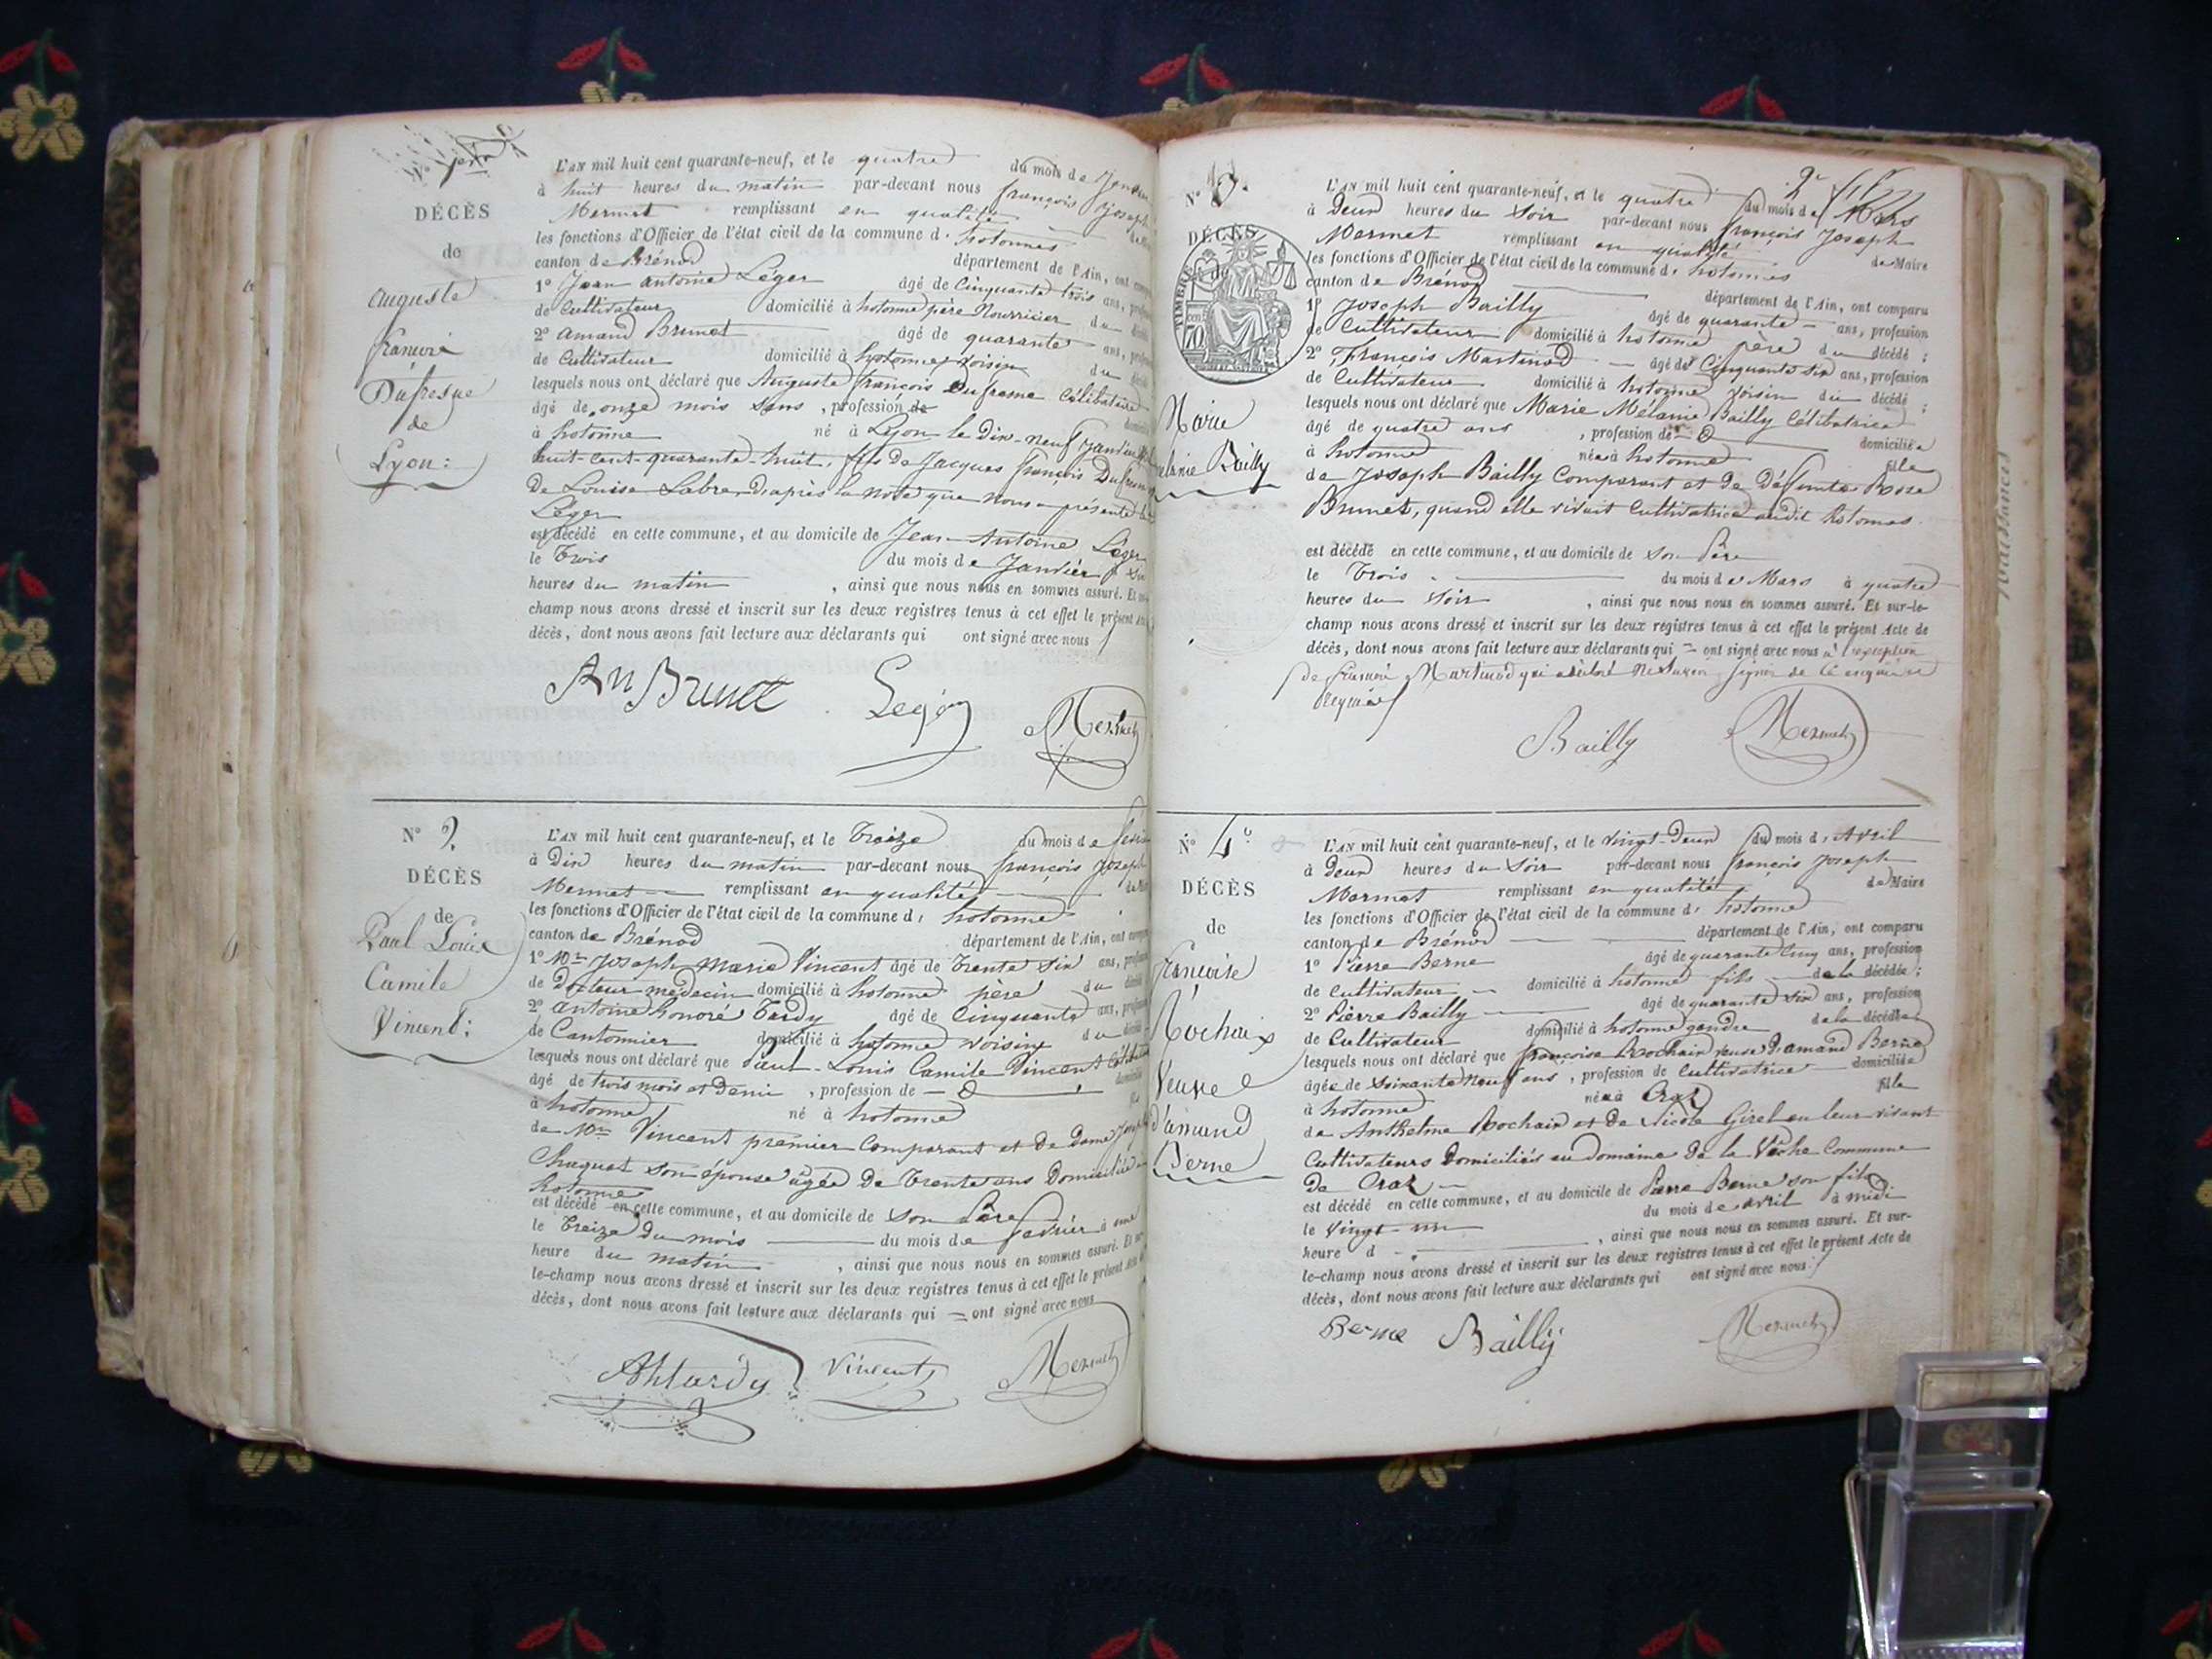 N° 1er
DÉCÈS
de
Auguste
françois
Dufresne
de
Lyon:
L'AN mil huit cent quarante-neuf, et le quatre du mois de Janvier
à huit heures du matin par-devant nous françois Joseph
Mermet remplissant en qualité de
les fonctions d'Officier de l'état civil de la commune d. hotonnes
canton de Brénod département de l'Ain, ont
1° Jean antoine Léger âgé de Cinquante trois ans,
de Cultivateur domicilié à hotonne père Nourricier du
2° amand Brunet âgé de quarante ans,
de Cultivateur domicilié à hotonne voisin du
lesquels nous ont déclaré que Auguste françois Dufresne Célibataire
âgé de onze mois sans, profession de
à hotonne né à Lyon le Dix-neuf Janvier
huit-cent-quarante-huit, fils de Jacques françois
De Louise Labre, d'après la note que nous a présenté
Léger
est décédé en cette commune, et au domicile de Jean-Antoine Léger
le Trois du mois de Janvier à six
heures du matin, ainsi que nous nous en sommes assuré. Et
champ nous avons dressé et inscrit sur les deux registres tenus à cet effet le présent
décès, dont nous avons fait lecture aux déclarants qui ont signé avec nous
An Brunet Leger Mermet
N° 2.
DÉCÈS
de
Paul Louis
Camile
Vincent:
L'AN mil huit cent quarante-neuf, et le Treize du mois de
à Dix heures du matin par-devant nous françois Joseph
Mermet remplissant en qualité
les fonctions d'Officier de l'état civil de la commune d. hotonne
canton de Brénod département de l'Ain, ont
1° Mr Joseph Marie Vincent âgé de Trente six ans,
de docteur médecin domicilié à hotonne père du
2° antoine honoré Tardy âgé de Cinquante ans,
de Cantonnier domicilié à hotonne voisin du
lesquels nous ont déclaré que Paul-Louis Camile Vincent
âgé de trois mois et Demi, profession de
à hotonne né à hotonne
de Mr Vincent premier Comparant et de Dame
Chaquet son épouse âgée de Trente ans Domiciliée
hotonne
est décédé en cette commune, et au domicile de son Père
le Treize du mois du mois de février à une
heure du matin, ainsi que nous nous en sommes assuré. Et
le-champ nous avons dressé et inscrit sur les deux registres tenus à cet effet le présent
décès, dont nous avons fait lecture aux déclarants qui = ont signé avec nous
Ahtardy Vincent Mermet
N° 3.
DÉCÈS
de
TIMBRE
70
Marie
Bailly
L'AN mil huit cent quarante-neuf, et le quatre du mois de Mars
à Deux heures du soir par-devant nous françois Joseph
Mermet remplissant en qualité de Maire
les fonctions d'Officier de l'état civil de la commune d. hotonnes
canton de Brénod département de l'Ain, ont comparu
1° Joseph Bailly âgé de quarante ans, profession
de Cultivateur domicilié à hotonne père du décédé;
2° François Martinod âgé de Cinquante six ans, profession
de Cultivateur domicilié à hotonne voisin du décédé;
lesquels nous ont déclaré que Marie Mélanie Bailly Célibatrice
âgé de quatre ans, profession de domiciliée
à hotonne née à hotonne fille
de Joseph Bailly Comparant et de Défunte Rose
Brunet, quand elle vivait Cultivatrice audit hotonnes.
est décédé en cette commune, et au domicile de son Père
le Trois du mois de Mars à quatre
heures du soir, ainsi que nous nous en sommes assuré. Et sur-le-
champ nous avons dressé et inscrit sur les deux registres tenus à cet effet le présent Acte de
décès, dont nous avons fait lecture aux déclarants qui = ont signé avec nous à l'exception
de françois Martinod qui a déclaré ne savoir signer de ce enquis et
requis
Bailly Mermet
N° 4.
DÉCÈS
de
françoise
Rochaix
Veuve
d'amand
Berne
L'AN mil huit cent quarante-neuf, et le vingt-Deux du mois d. Avril
à Deux heures du Soir par-devant nous françois Joseph
Mermet remplissant en qualité de Maire
les fonctions d'Officier de l'état civil de la commune d. hotonne
canton de Brénod département de l'Ain, ont comparu
1° Pierre Berne âgé de quarante cinq ans, profession
de Cultivateur domicilié à hotonne fils de la décédée;
2° Pierre Bailly âgé de quarante six ans, profession
de Cultivateur domicilié à hotonne gendre de la décédée
lesquels nous ont déclaré que françoise Rochaix veuve d'amand Berne
âgée de soixante neuf ans, profession de Cultivatrice domiciliée
à hotonne née à Oraz fille
de Anthelme Rochaix et de Nicole Girel en leur vivant
Cultivateurs Domiciliés au domaine de la Commune
de Oraz
est décédé en cette commune, et au domicile de Pierre Berne son fils
le Vingt-un du mois de avril à midi
heure d, ainsi que nous nous en sommes assuré. Et sur-
le-champ nous avons dressé et inscrit sur les deux registres tenus à cet effet le présent Acte de
décès, dont nous avons fait lecture aux déclarants qui ont signé avec nous
Berne Bailly Mermet